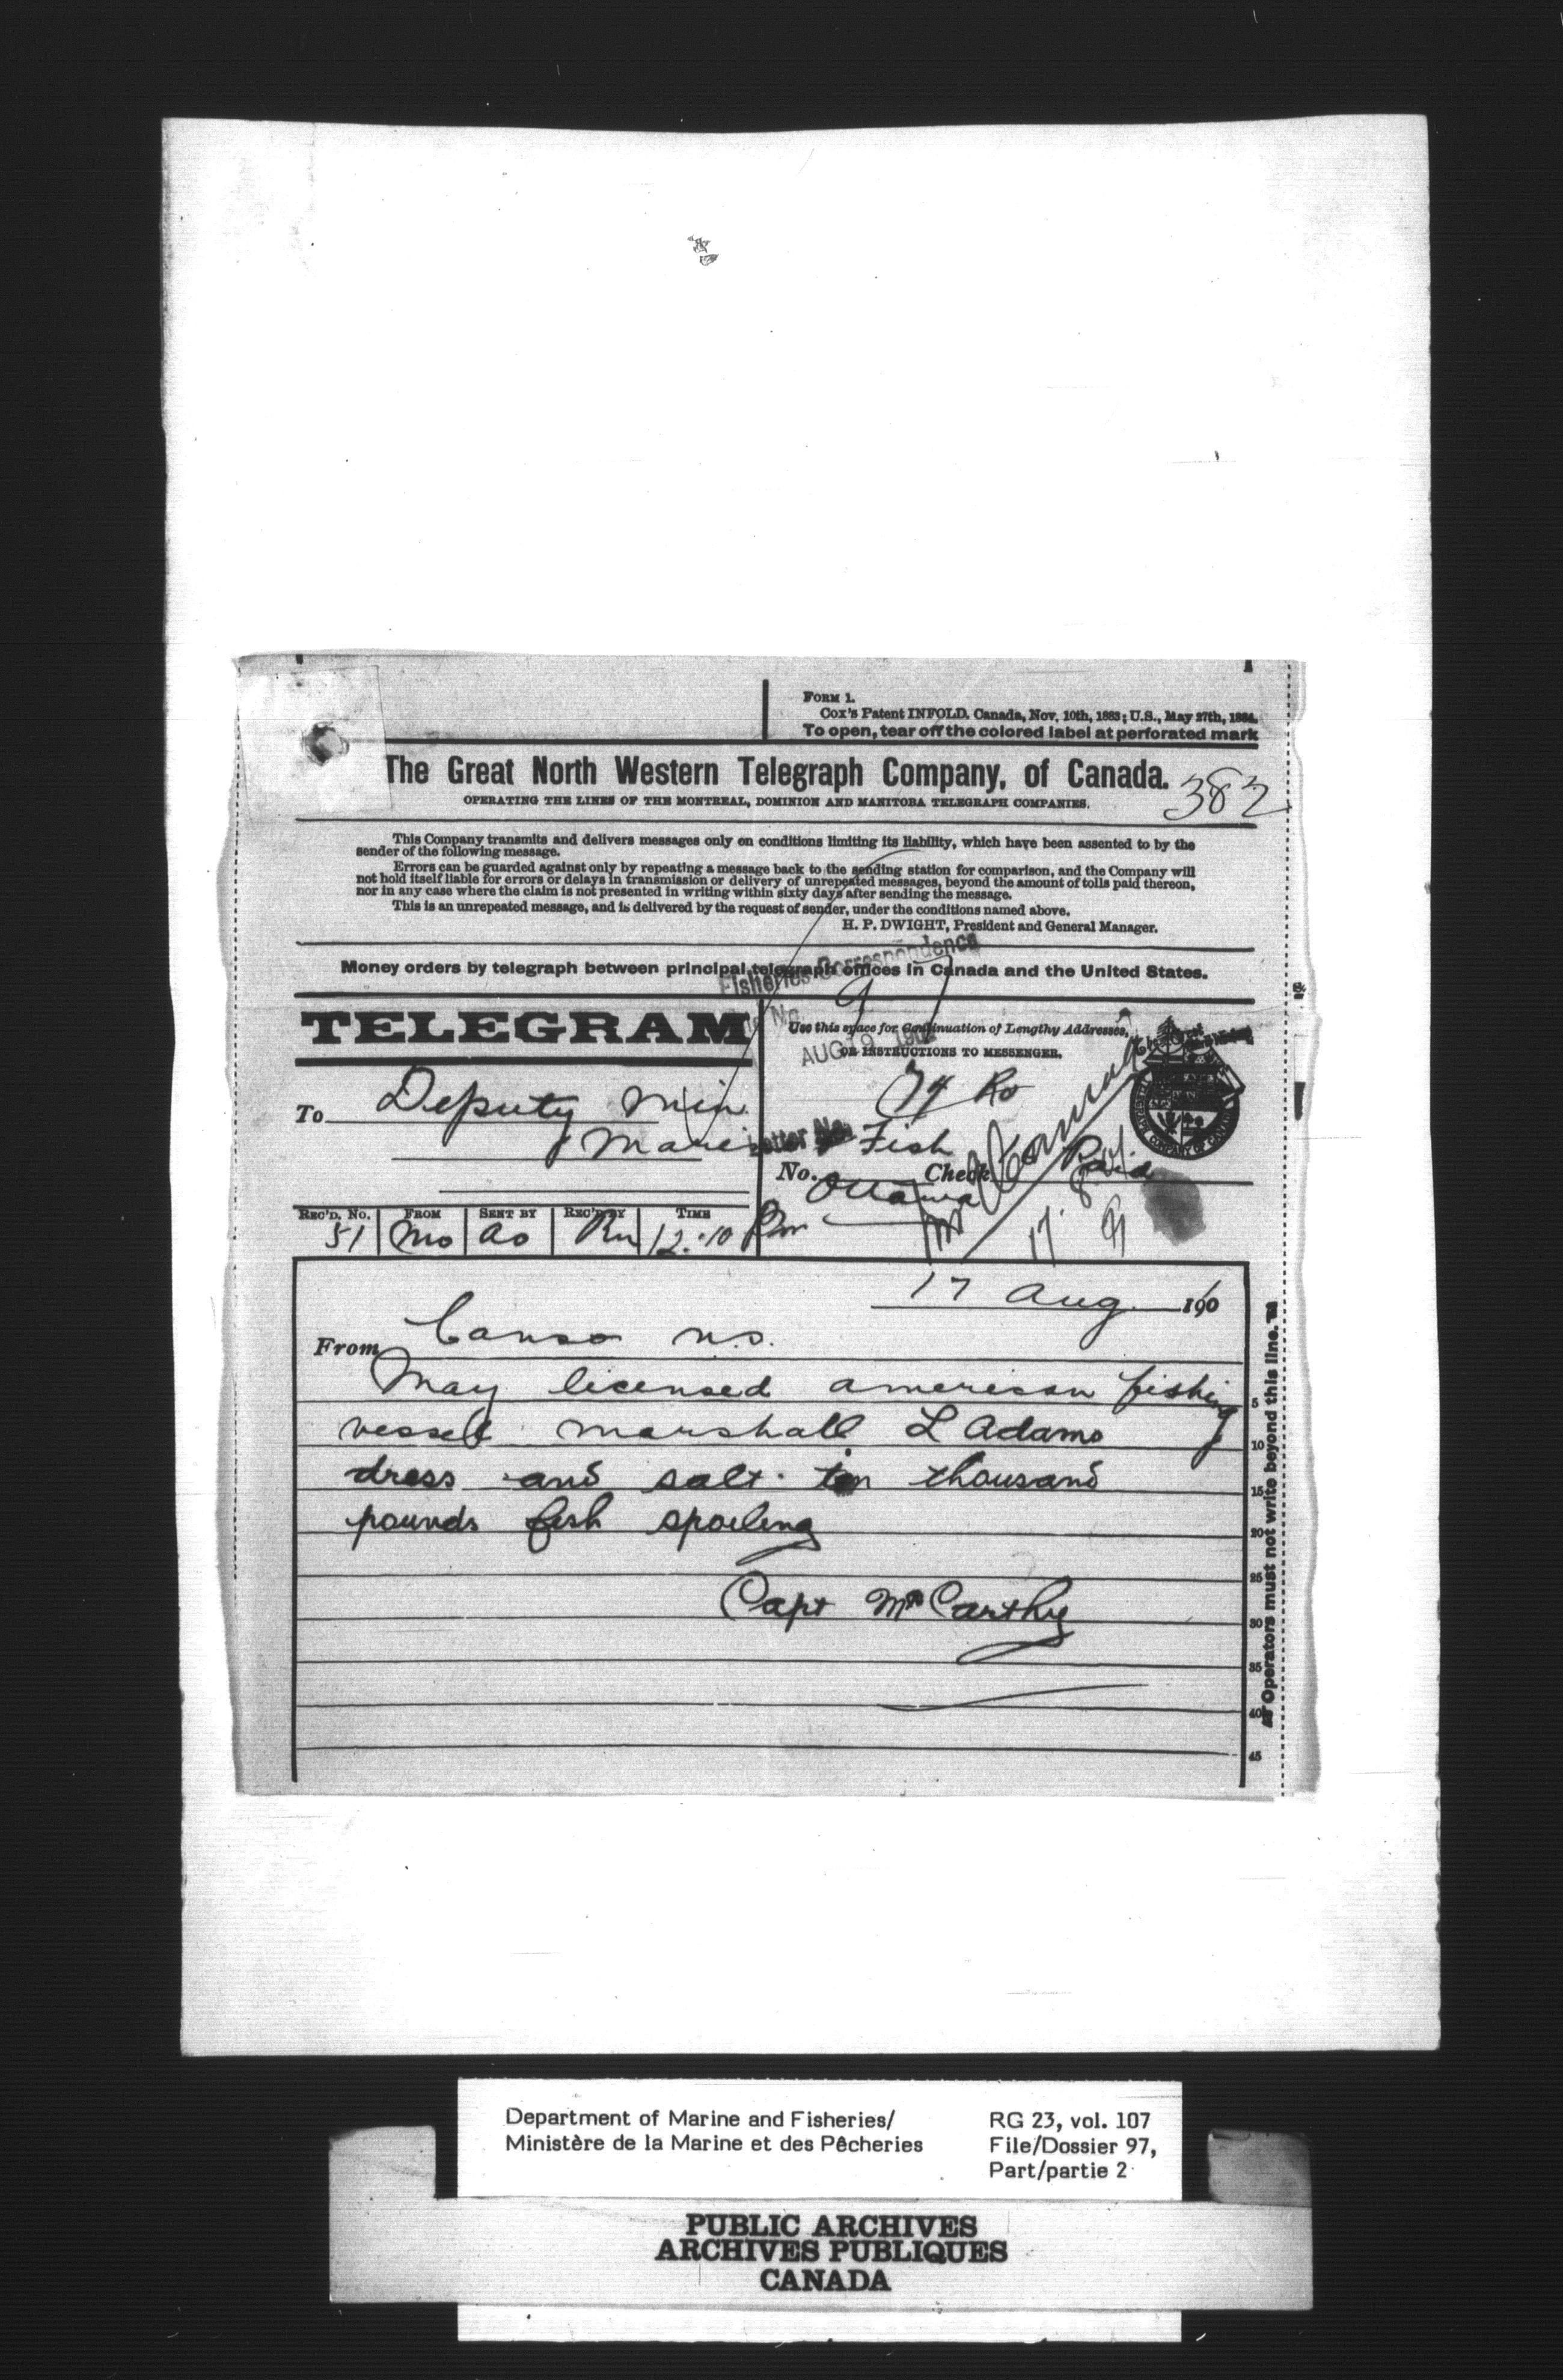 FORM 1.
Cox's Patent INFOLD. Canada, Nov. 10th, 1883; U.S., May 27th, 1884.
To open, tear off the colored label at perforated mark
The Great North Western Telegraph Company, of Canada.
382
OPERATING THE LINES OF THE MONTREAL, DOMINION AND MANITOBA TELEGRAPH COMPANIES.
This Company transmits and delivers messages only on conditions limiting its liability, which have been assented to by the
sender of the following message.
Errors can be guarded against only by repeating a message back to the sending station for comparison, and the Company will
not hold itself liable for errors or delays in transmission or delivery of unrepeated messages, beyond the amount of tolls paid thereon,
nor in any case where the claim is not presented in writing within sixty days after sending the message.
This is an unrepeated message, and is delivered by the request of sender, under the conditions named above.
H. P. DWIGHT, President and General Manager.
Fisheries Correspondence
Money orders by telegraph between principal telegraph offices in Canada and the United States.
97
TELEGRAM
No.
Use this space for Continuation of Lengthy Addresses,
AUG 19
OR INSTRUCTIONS TO MESSENGER.
To Deputy Min
Letter No.
Fish
No. Check Paid
Ottawa
REC'D. No. FROM SENT BY REC'D BY TIME
51 Mo ao Rn 12:10 Pm
17 Aug 190
From Canso n.s.
May licensed american fishing
vessel marshall L Adams
dress and salt ten thousand
pounds fish spoiling
Capt McCarthy
5
10
15
20
25
30
35
40
45
Operators must not write beyond this line.
Department of Marine and Fisheries/
Ministère de la Marine et des Pêcheries
RG 23, vol. 107
File/Dossier 97,
Part/partie 2
PUBLIC ARCHIVES
ARCHIVES PUBLIQUES
CANADA